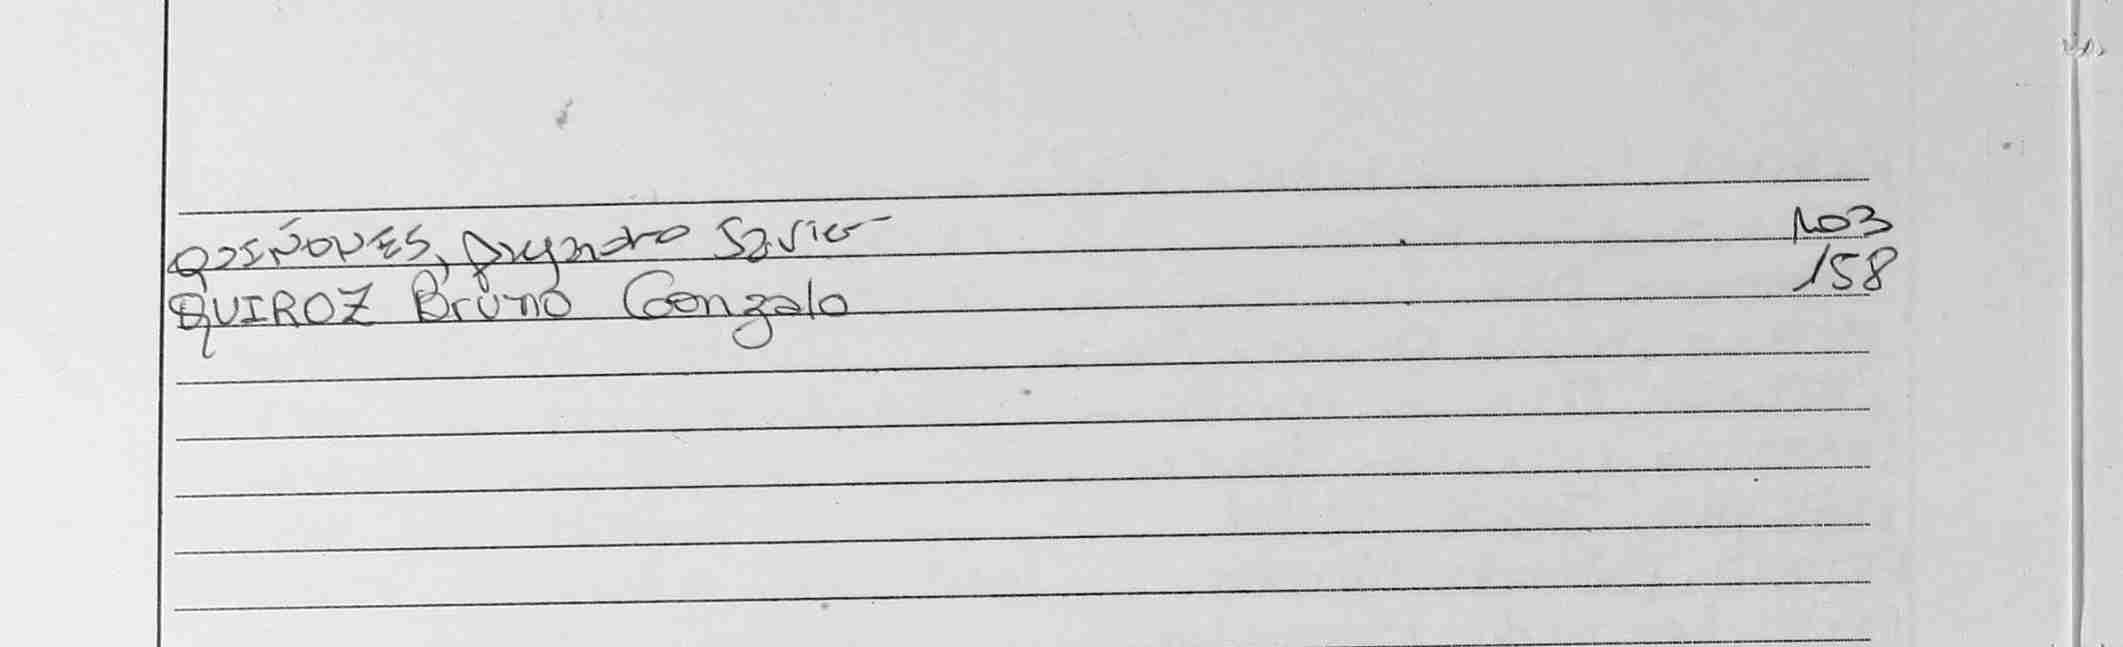 QUIÑONES, Alejandro Javier 103
QUIROZ Bruno Gonzalo 158